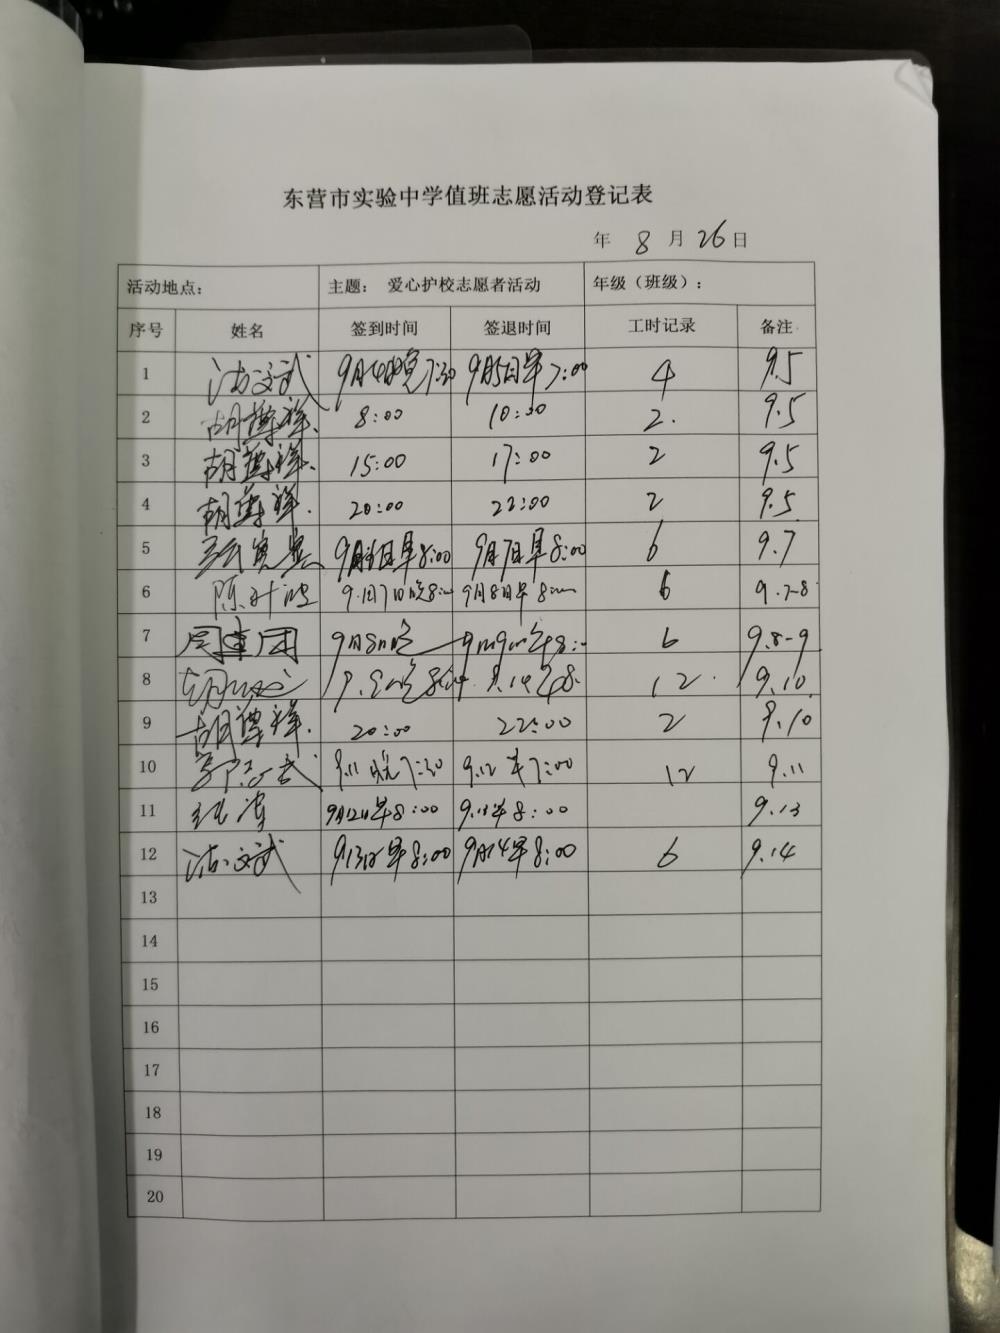 东营市实验中学值班志愿活动登记表
年 8 月 26 日
活动地点： 主题： 爱心护校志愿者活动 年级（班级）：
序号 姓名 签到时间 签退时间 工时记录 备注
1 文武 9月4日晚7:30 9月5日早7:00 4 9.5
2 胡尊祥 8:00 10:00 2. 9.5
3 胡尊祥 15:00 17:00 2 9.5
4 胡尊祥 20:00 22:00 2 9.5
5 9月6日早8:00 9月7日早8:00 6 9.7
6 陈叶波 9月7日晚8: 9月8日早8: 6 9.7-8
7 周建国 9月8日晚 9月9日早8: 6 9.8-9
8 12 9.10
9 胡尊祥 20:00 22:00 2 9.10
10 9.11晚7:30 9.12早7:00 12 9.11
11 9月12日早8:00 9.13早8:00 9.13
12 文武 9.13日早8:00 9月14早8:00 6 9.14
13
14
15
16
17
18
19
20